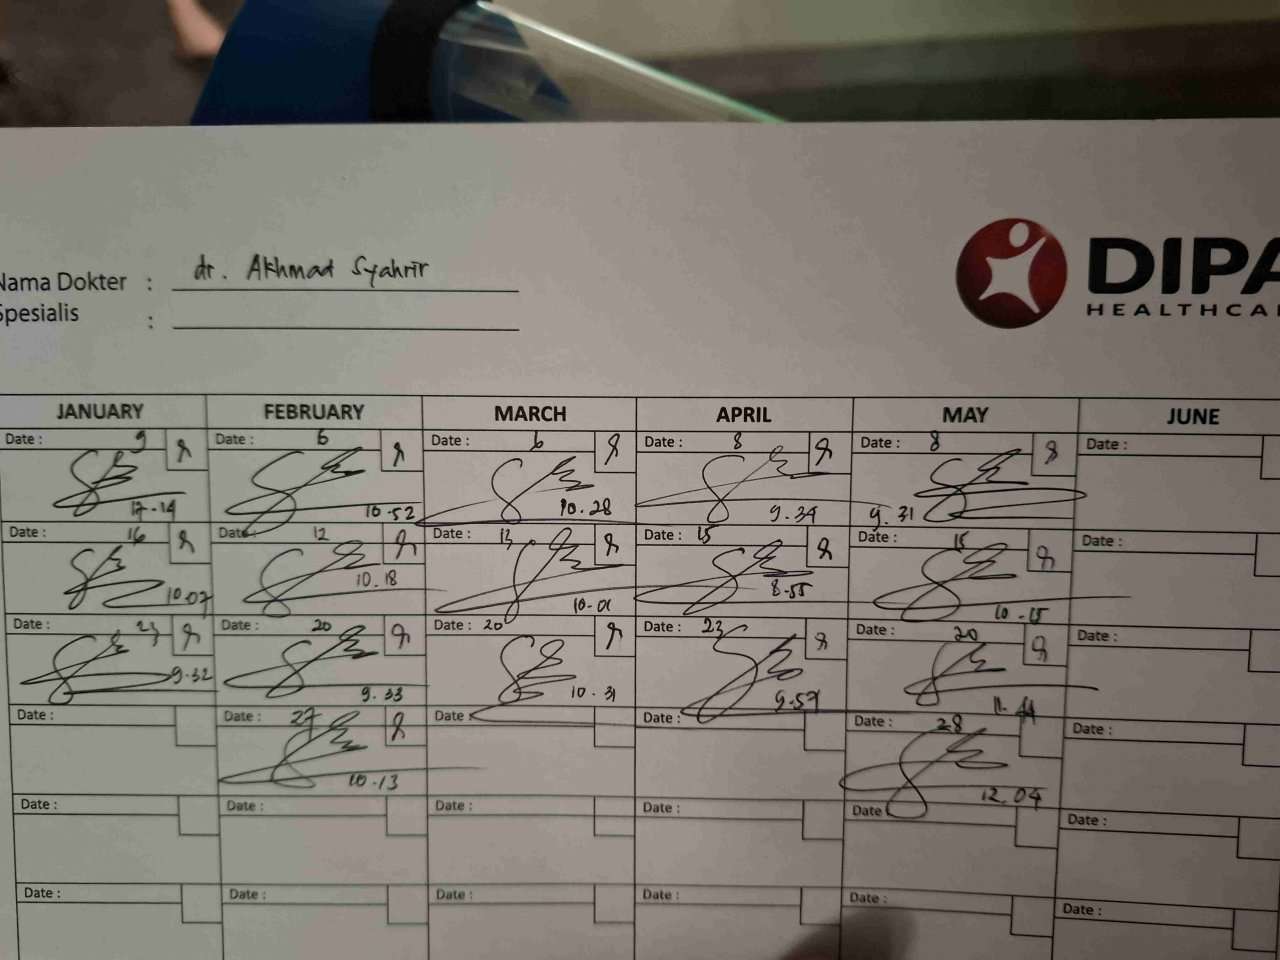 DIPA
HEALTHCA
Nama Dokter : dr. Akhmad Syahrir
Spesialis :
JANUARY FEBRUARY MARCH APRIL MAY JUNE
Date : 9 Date : 6 Date : 6 Date : 8 Date : 8 Date :
17-14 10-52 10.28 9.34 9.31
Date : 16 Date : 12 Date : 13 Date : 15 Date : 15 Date :
10.07 10.18 10-01 8-55 10-15
Date : 23 Date : 20 Date : 20 Date : 23 Date : 20 Date :
9.32 9.33 10.31 9.57 11.44
Date : Date : 27 Date : Date : Date : 28 Date :
10.13 12.04
Date : Date : Date : Date : Date Date :
Date : Date : Date : Date : Date : Date :